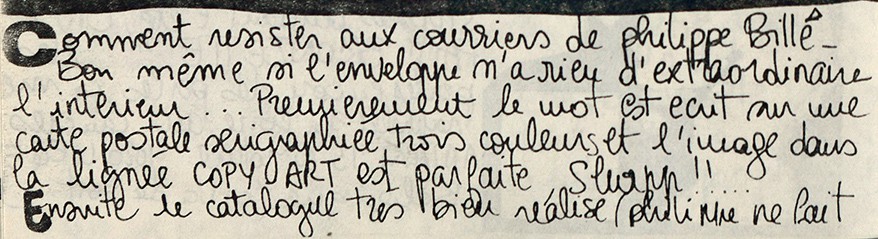 Comment resister aux courriers de philippe Billé_
Bon même si l'enveloppe n'a rien d'extraordinaire
l'intérieur ... Premierement le mot est ecrit sur une
carte postale serigraphiée trois couleurs et l'image dans
la lignée COPY ART est parfaite Slurpp!!......
Ensuite le catalogue tres bien réalisé (philippe ne fait